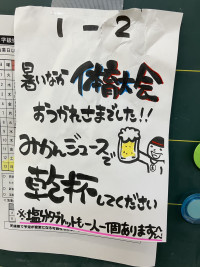 1-2
暑いなか体育大会
おつかれさまでした!!
みかんジュースで
乾杯してください
※塩分タブレットも一人一個あります